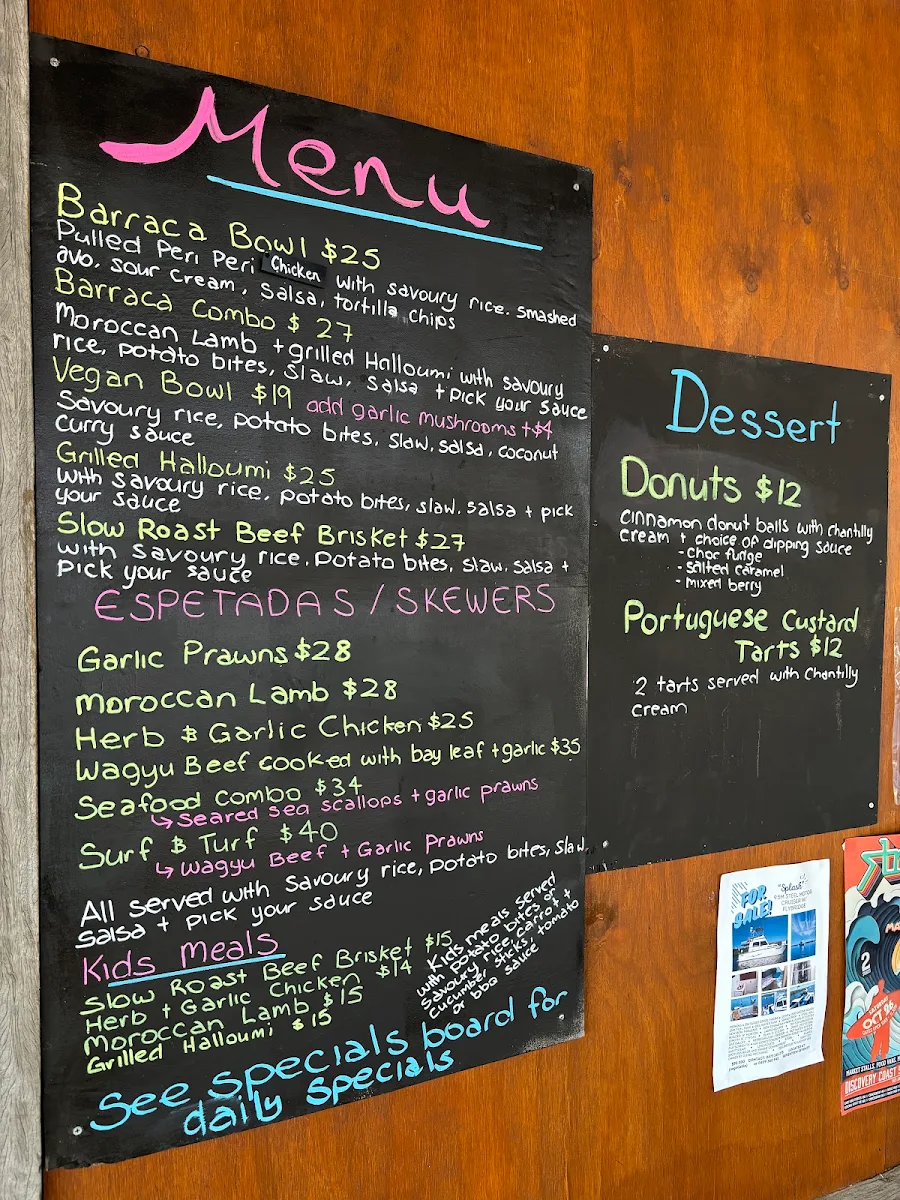 Menu
Barraca Bowl $25
Pulled Peri Peri Chicken with savoury rice. smashed
avo. sour cream, salsa, tortilla chips
Barraca Combo $27
Moroccan Lamb + grilled Halloumi with savoury
rice, potato bites, slaw, salsa + pick your sauce
Vegan Bowl $19 add garlic mushrooms +$4
Savoury rice, potato bites, slaw, salsa, coconut
curry sauce
Grilled Halloumi $25
with savoury rice, potato bites, slaw. salsa + pick
your sauce
Slow Roast Beef Brisket $27
with savoury rice, potato bites, slaw, salsa +
pick your sauce
ESPETADAS / SKEWERS
Garlic Prawns $28
Moroccan Lamb $28
Herb & Garlic Chicken $25
Wagyu Beef cooked with bay leaf + garlic $35
Seafood combo $34
↳ Seared sea scallops + garlic prawns
Surf & Turf $40
↳ Wagyu Beef + Garlic Prawns
All served with savoury rice, potato bites, slaw,
salsa + pick your sauce
Kids meals
Slow Roast Beef Brisket $15
Herb + Garlic Chicken $14
Moroccan Lamb $15
Grilled Halloumi $15
Kids meals served
with potato bites or
savoury rice, carrot +
cucumber sticks + tomato
or bbq sauce
See specials board for
daily specials
Dessert
Donuts $12
cinnamon donut balls with chantilly
cream + choice of dipping sauce
- choc fudge
- salted caramel
- mixed berry
Portuguese Custard
Tarts $12
2 tarts served with Chantilly
cream
FOR
SALE!
"Splash"
9.5M STEEL MOTOR
CRUISER W/
FLYBRIDGE
2
SATURDAY
OCT 26
MARKET STALLS, FOOD
DISCOVERY COAST